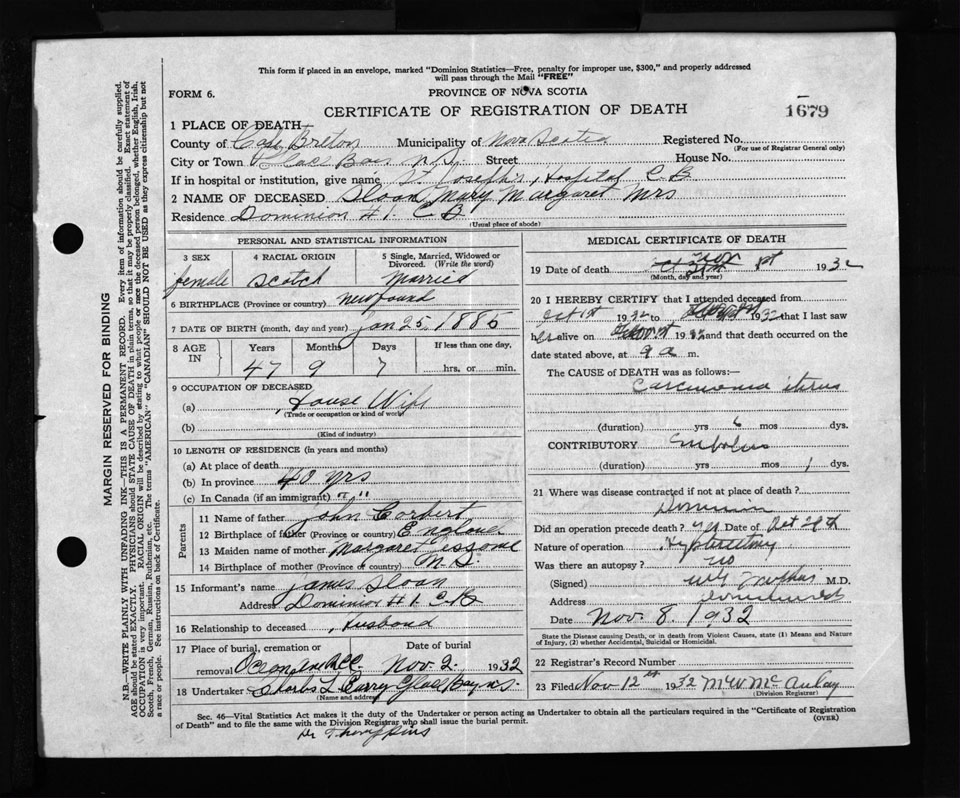 This form if placed in an envelope, marked "Dominion Statistics—Free, penalty for improper use, $300," and properly addressed
will pass through the Mail "FREE"
FORM 6.
PROVINCE OF NOVA SCOTIA
CERTIFICATE OF REGISTRATION OF DEATH
1679
1 PLACE OF DEATH—
County of Cape Breton Municipality of Nova Scotia Registered No.
(For use of Registrar General only)
City or Town Glace Bay N.S. Street House No.
If in hospital or institution, give name St. Joseph's Hospital C B
2 NAME OF DECEASED Sloan Mary Margaret Mrs
Residence Dominion # 1. C B
(Usual place of abode)
PERSONAL AND STATISTICAL INFORMATION
3 SEX 4 RACIAL ORIGIN 5 Single, Married, Widowed or Divorced. (Write the word)
female Scotch Married
6 BIRTHPLACE (Province or country) Newfound
7 DATE OF BIRTH (month, day and year) Jan 25, 1885
8 AGE IN Years Months Days If less than one day,
47 9 7 hrs. or min.
9 OCCUPATION OF DECEASED
(a) House Wife
(Trade or occupation or kind of work)
(b)
(Kind of industry)
10 LENGTH OF RESIDENCE (in years and months)
(a) At place of death
(b) In province 40 yrs
(c) In Canada (if an immigrant) " "
Parents
11 Name of father John Corbert
12 Birthplace of father (Province or country) England
13 Maiden name of mother Margaret
14 Birthplace of mother (Province or country) N. S.
15 Informant's name James Sloan
Address Dominion # 1. C.B.
16 Relationship to deceased Husband
17 Place of burial, cremation or Date of burial
removal Nov 2. 1932
18 Undertaker Charles L Curry Glace Bay N.S.
(Name and address)
MEDICAL CERTIFICATE OF DEATH
19 Date of death Nov 1st 1932
(Month, day and year)
20 I HEREBY CERTIFY that I attended deceased from
Oct 1st 1932 to 1932 that I last saw
her alive on 1932 and that death occurred on the
date stated above, at 9 a m.
The CAUSE OF DEATH was as follows:—
Carcinoma uterus
(duration) yrs 6 mos dys.
CONTRIBUTORY Embolus
(duration) yrs mos 1 dys.
21 Where was disease contracted if not at place of death?
Dominion
Did an operation precede death? yes Date of Oct 28th
Nature of operation
Was there an autopsy? no
(Signed) M.D.
Address
Date Nov. 8. 1932
State the Disease causing Death, or in death from Violent Causes, state (1) Means and Nature
of Injury, (2) whether Accidental, Suicidal or Homicidal.
22 Registrar's Record Number
23 Filed Nov 12th 1932 M W McAulay
(Division Registrar)
Sec. 46—Vital Statistics Act makes it the duty of the Undertaker or person acting as Undertaker to obtain all the particulars required in the "Certificate of Registration
of Death" and to file the same with the Division Registrar who shall issue the burial permit. (OVER)
Dr
MARGIN RESERVED FOR BINDING
N.B.—WRITE PLAINLY WITH UNFADING INK—THIS IS A PERMANENT RECORD. Every item of information should be carefully supplied.
AGE should be stated EXACTLY. PHYSICIANS should STATE CAUSE OF DEATH in plain terms, so that it may be properly classified. Exact statement of
OCCUPATION is very important. RACIAL ORIGIN will be described by stating to what people or race the deceased person belonged, whether English, Irish,
Scotch, French, German, Russian, Ruthenian, etc. The terms "AMERICAN" or "CANADIAN" SHOULD NOT BE USED as they express citizenship but not
a race or people. See instructions on back of Certificate.